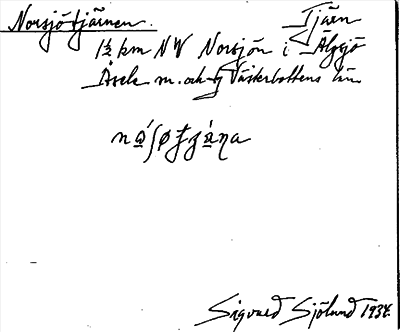 Norsjötjärnen. Tjärn
1½ km NW Norsjön i Älgsjö
Åsele m. och Västerbottens län
Sigvard Sjölund 1934.